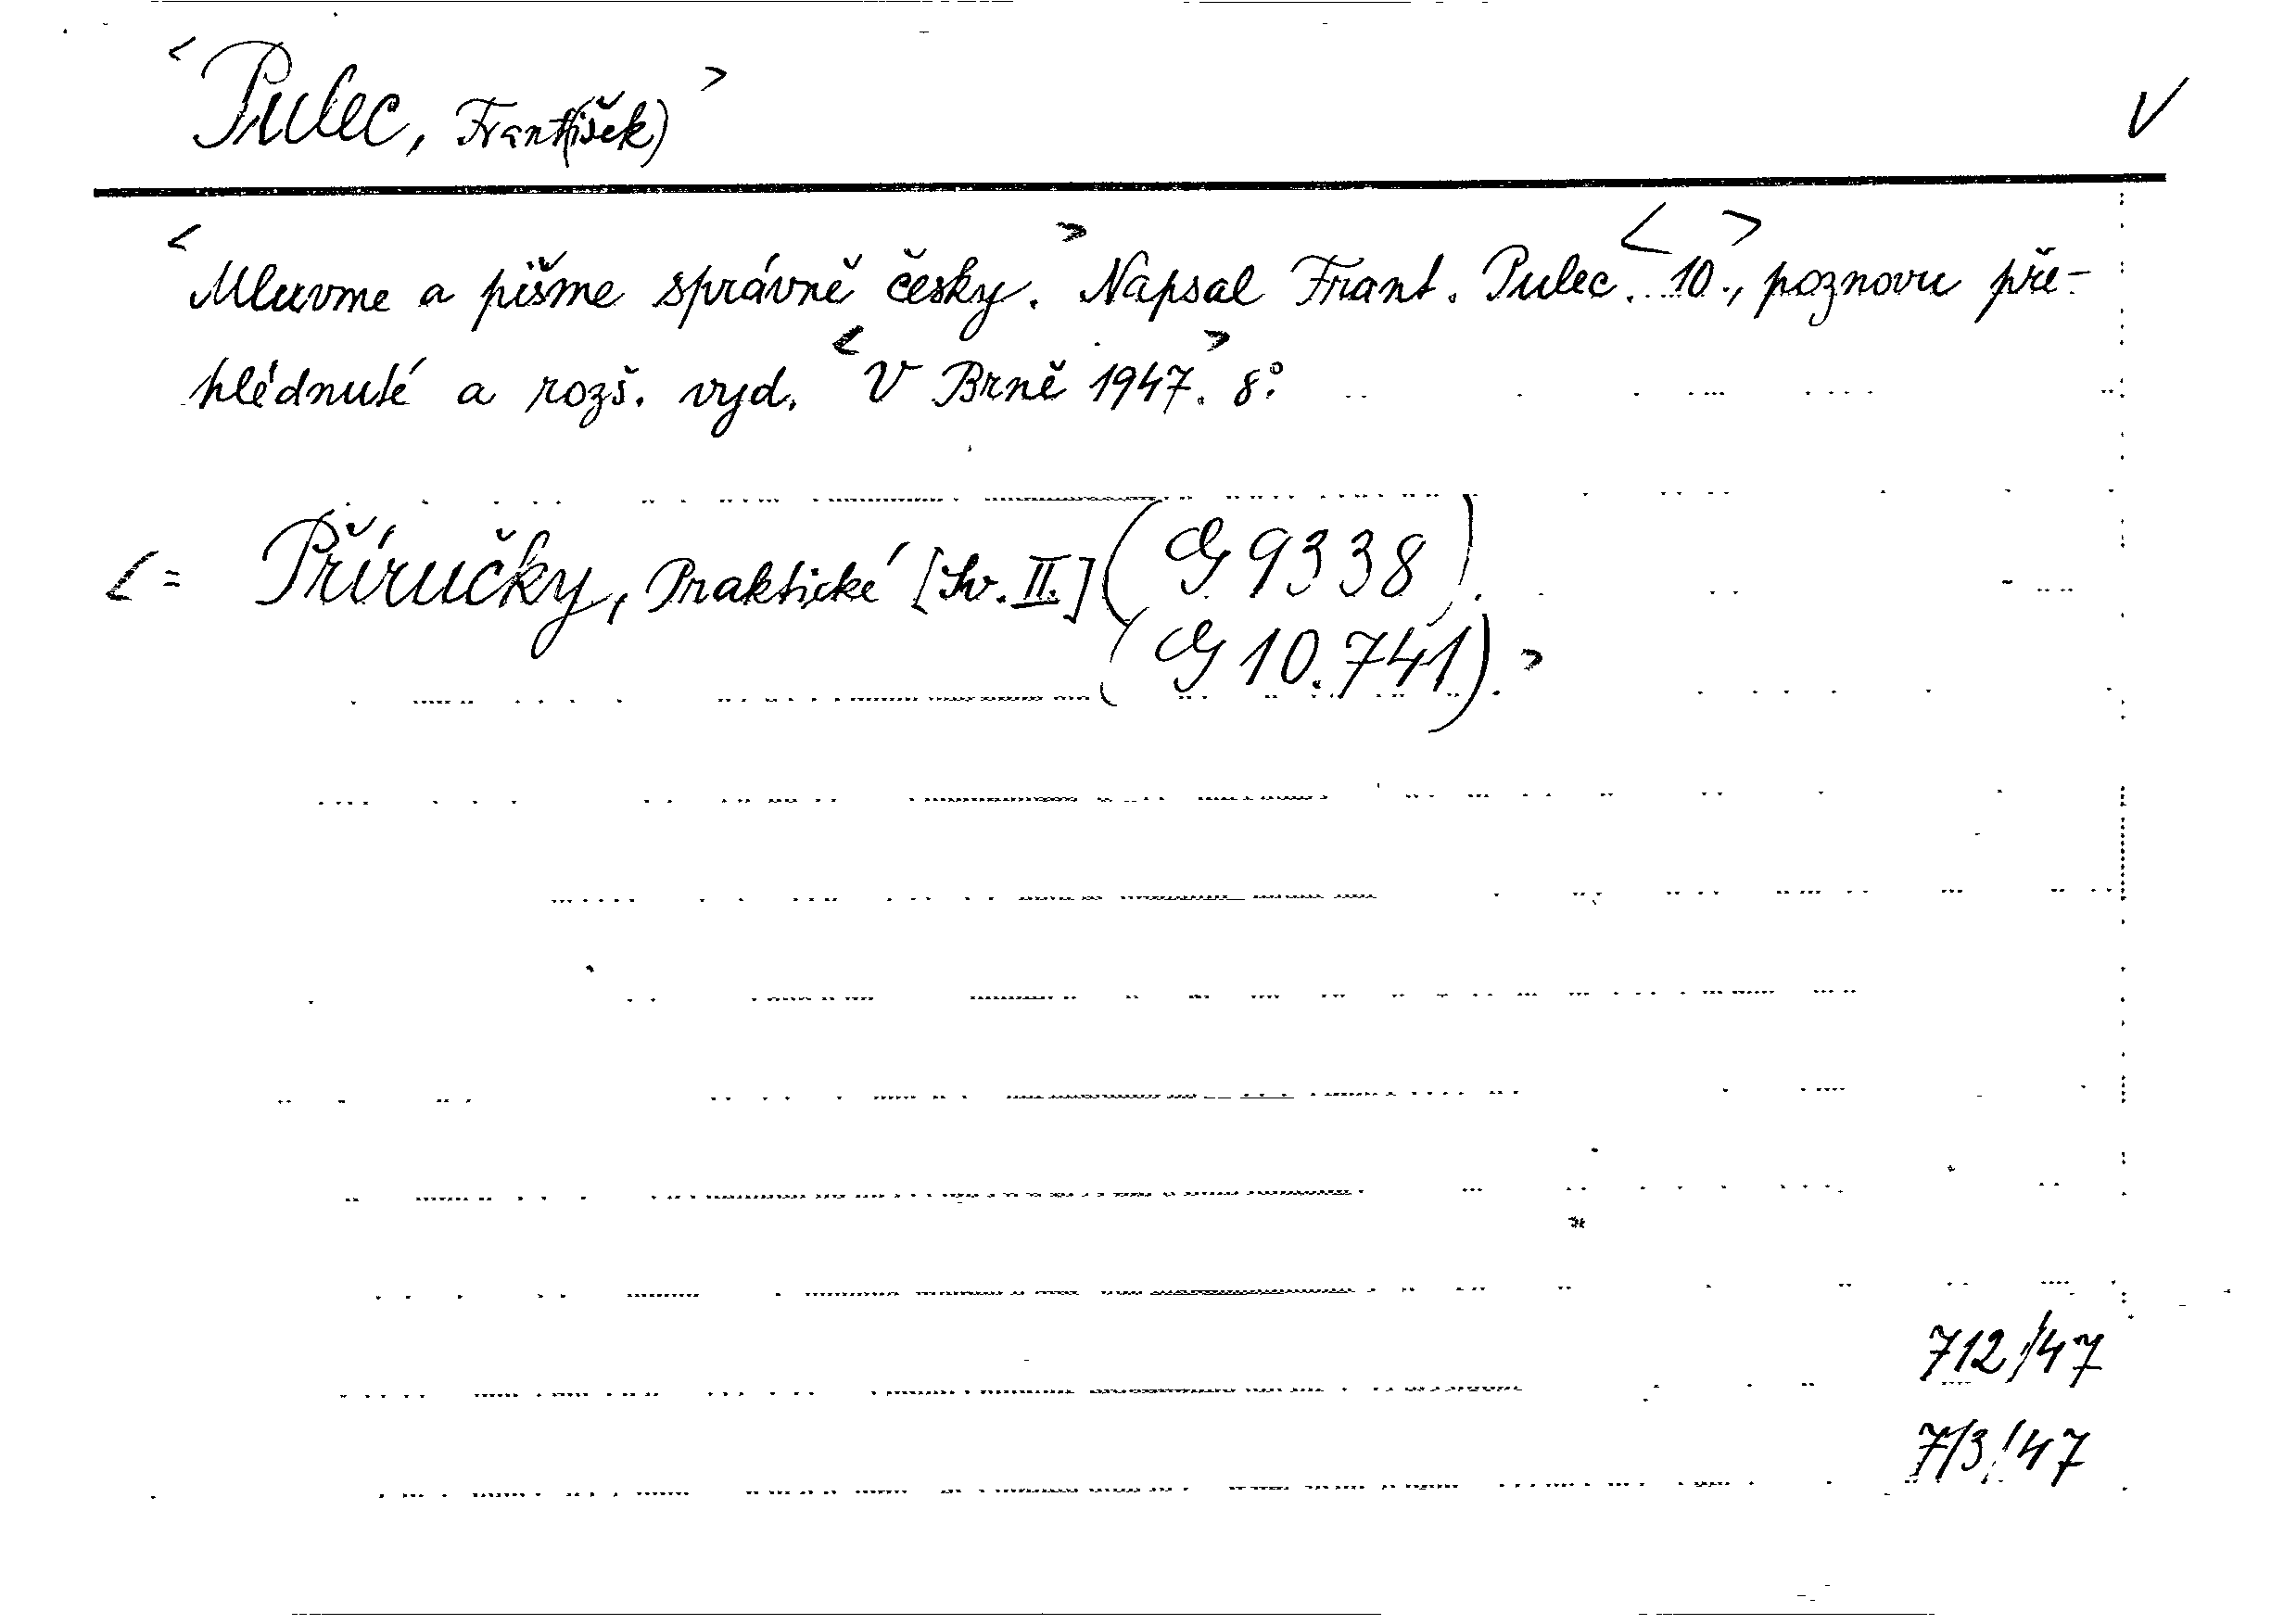 <Pulec, Frant(išek)> V
<Mluvme a pišme správně česky.> Napsal Frant. Pulec. <10.>, poznovu pře-
hlédnuté a rozš. vyd. <V Brně 1947.> 8°.
<= Příručky, Praktické [Sv. II.] (G 9338).
(G 10.741).>
712/47
713/47